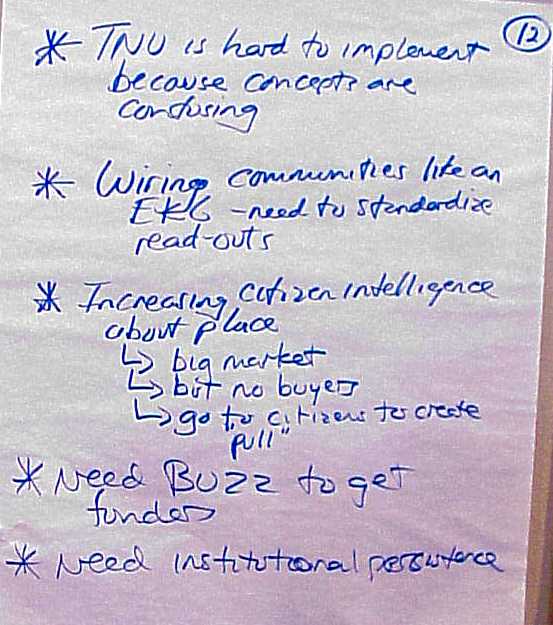 12
* TNU is hard to implement
because concepts are
confusing
* Wiring communities like an
EKG - need to standardize
read-outs
* Increasing citizen intelligence
about place
↳ big market
↳ but no buyers
↳ go to citizens to create
pull"
* Need BUZZ to get
funders
* Need institutional persistence